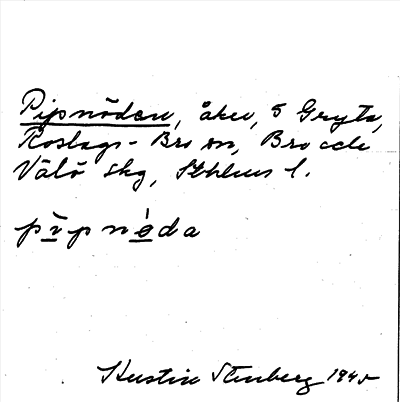 Pipnöden, åker, 5 Gryta,
Roslags-Bro sn, Bro och
Vätö skg, Sthlms l.
pīpnö̀da
Kerstin Stenberg 1945